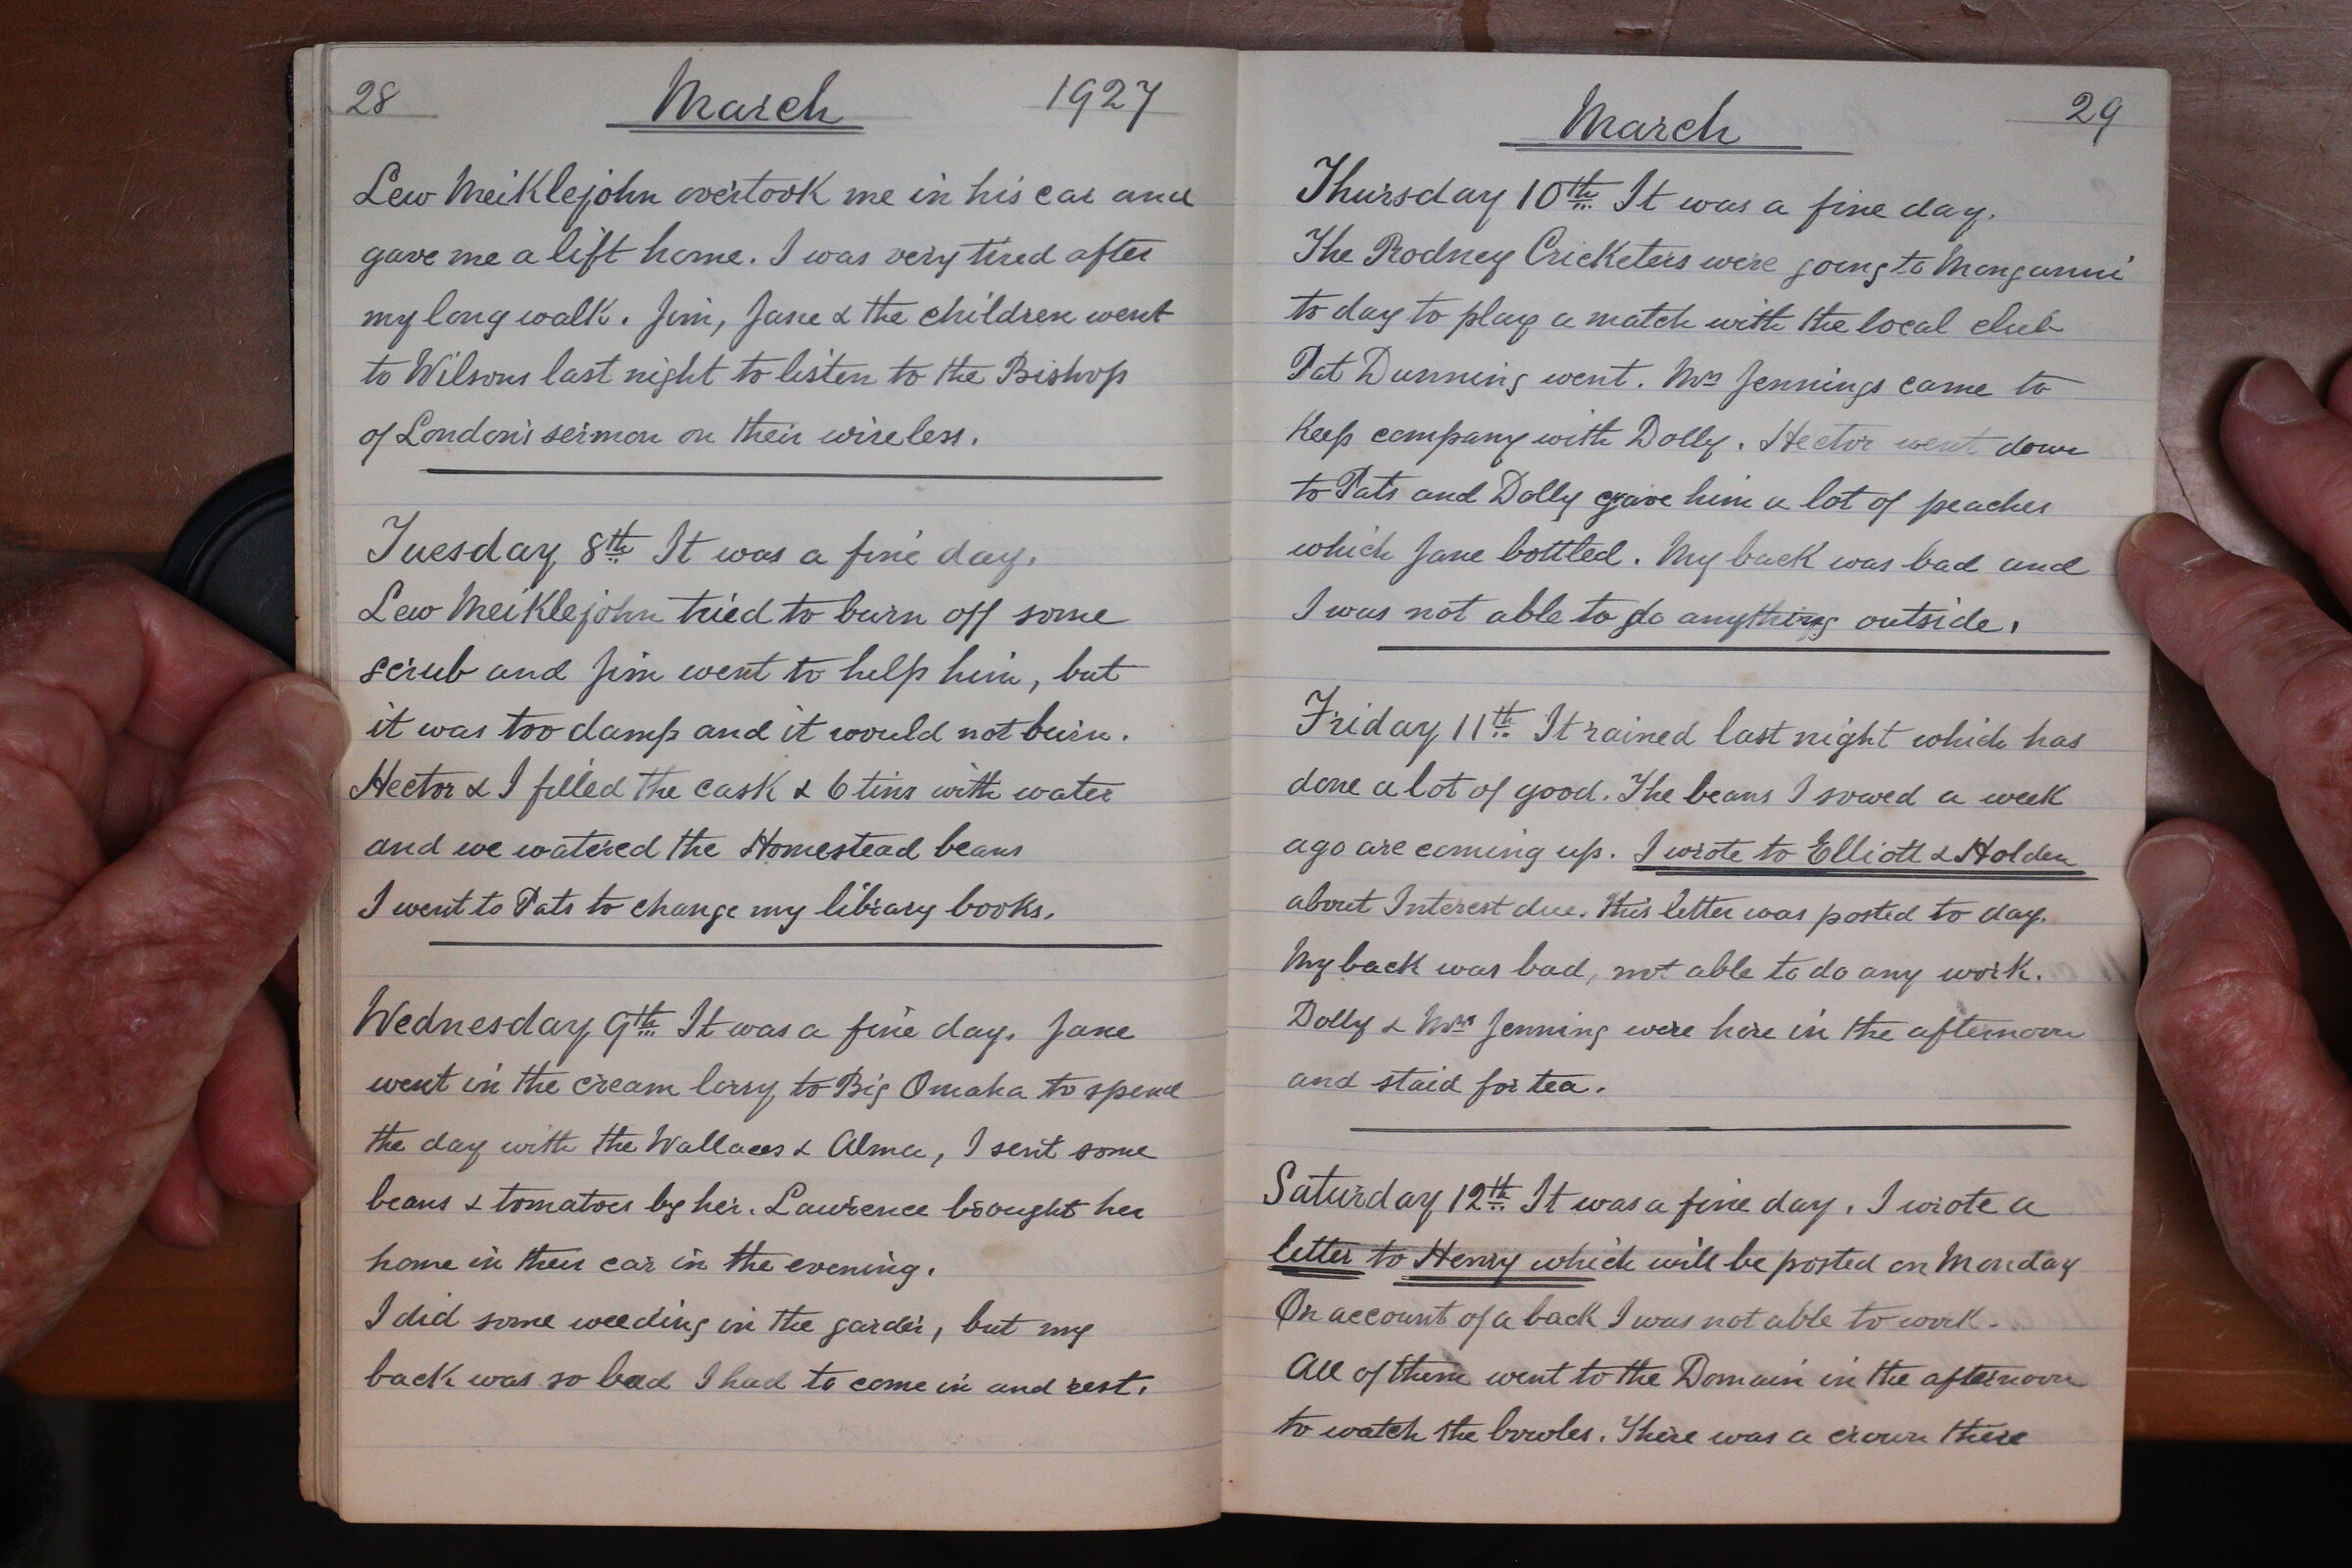 28 March 1927
Lew Meiklejohn overtook me in his car and
gave me a lift home. I was very tired after
my long walk. Jim, Jane & the children went
to Wilsons last night to listen to the Bishop
of London's sermon on their wireless.
Tuesday 8th It was a fine day.
Lew Meiklejohn tried to burn off some
scrub and Jim went to help him, but
it was too damp and it would not burn.
Hector & I filled the cask & 6 tins with water
and we watered the Homestead beans
I went to Pats to change my library books.
Wednesday 9th It was a fine day. Jane
went in the cream lorry to Big Omaha to spend
the day with the Wallaces & Alma, I sent some
beans & tomatoes by her. Lawrence brought her
home in their car in the evening.
I did some weeding in the garden, but my
back was so bad I had to come in and rest.
March 29
Thursday 10th It was a fine day.
The Rodney Cricketers were going to Mangawai
to day to play a match with the local club
Pat Dunning went. Mrs Jennings came to
Keep company with Dolly. Hector went down
to Pats and Dolly gave him a lot of peaches
which Jane bottled. My back was bad and
I was not able to do anything outside.
Friday 11th It rained last night which has
done a lot of good. The beans I sowed a week
ago are coming up. I wrote to Elliott & Holden
about Interest due. This letter was posted to day.
My back was bad, not able to do any work.
Dolly & Mrs Jenning were here in the afternoon
and staid for tea.
Saturday 12th It was a fine day. I wrote a
letter to Henry which will be posted on Monday
On account of a back I was not able to work.
All of them went to the Domain in the afternoon
to watch the bowles. There was a crown there